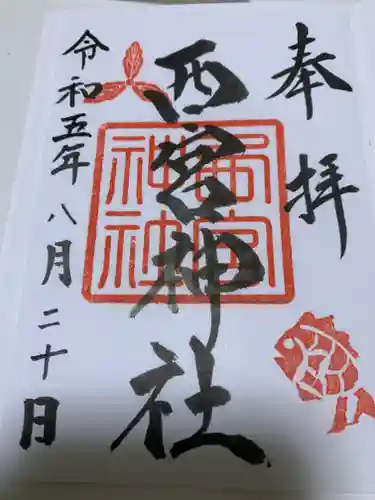 奉拝
西宮神社
西宮神社
令和五年八月二十日